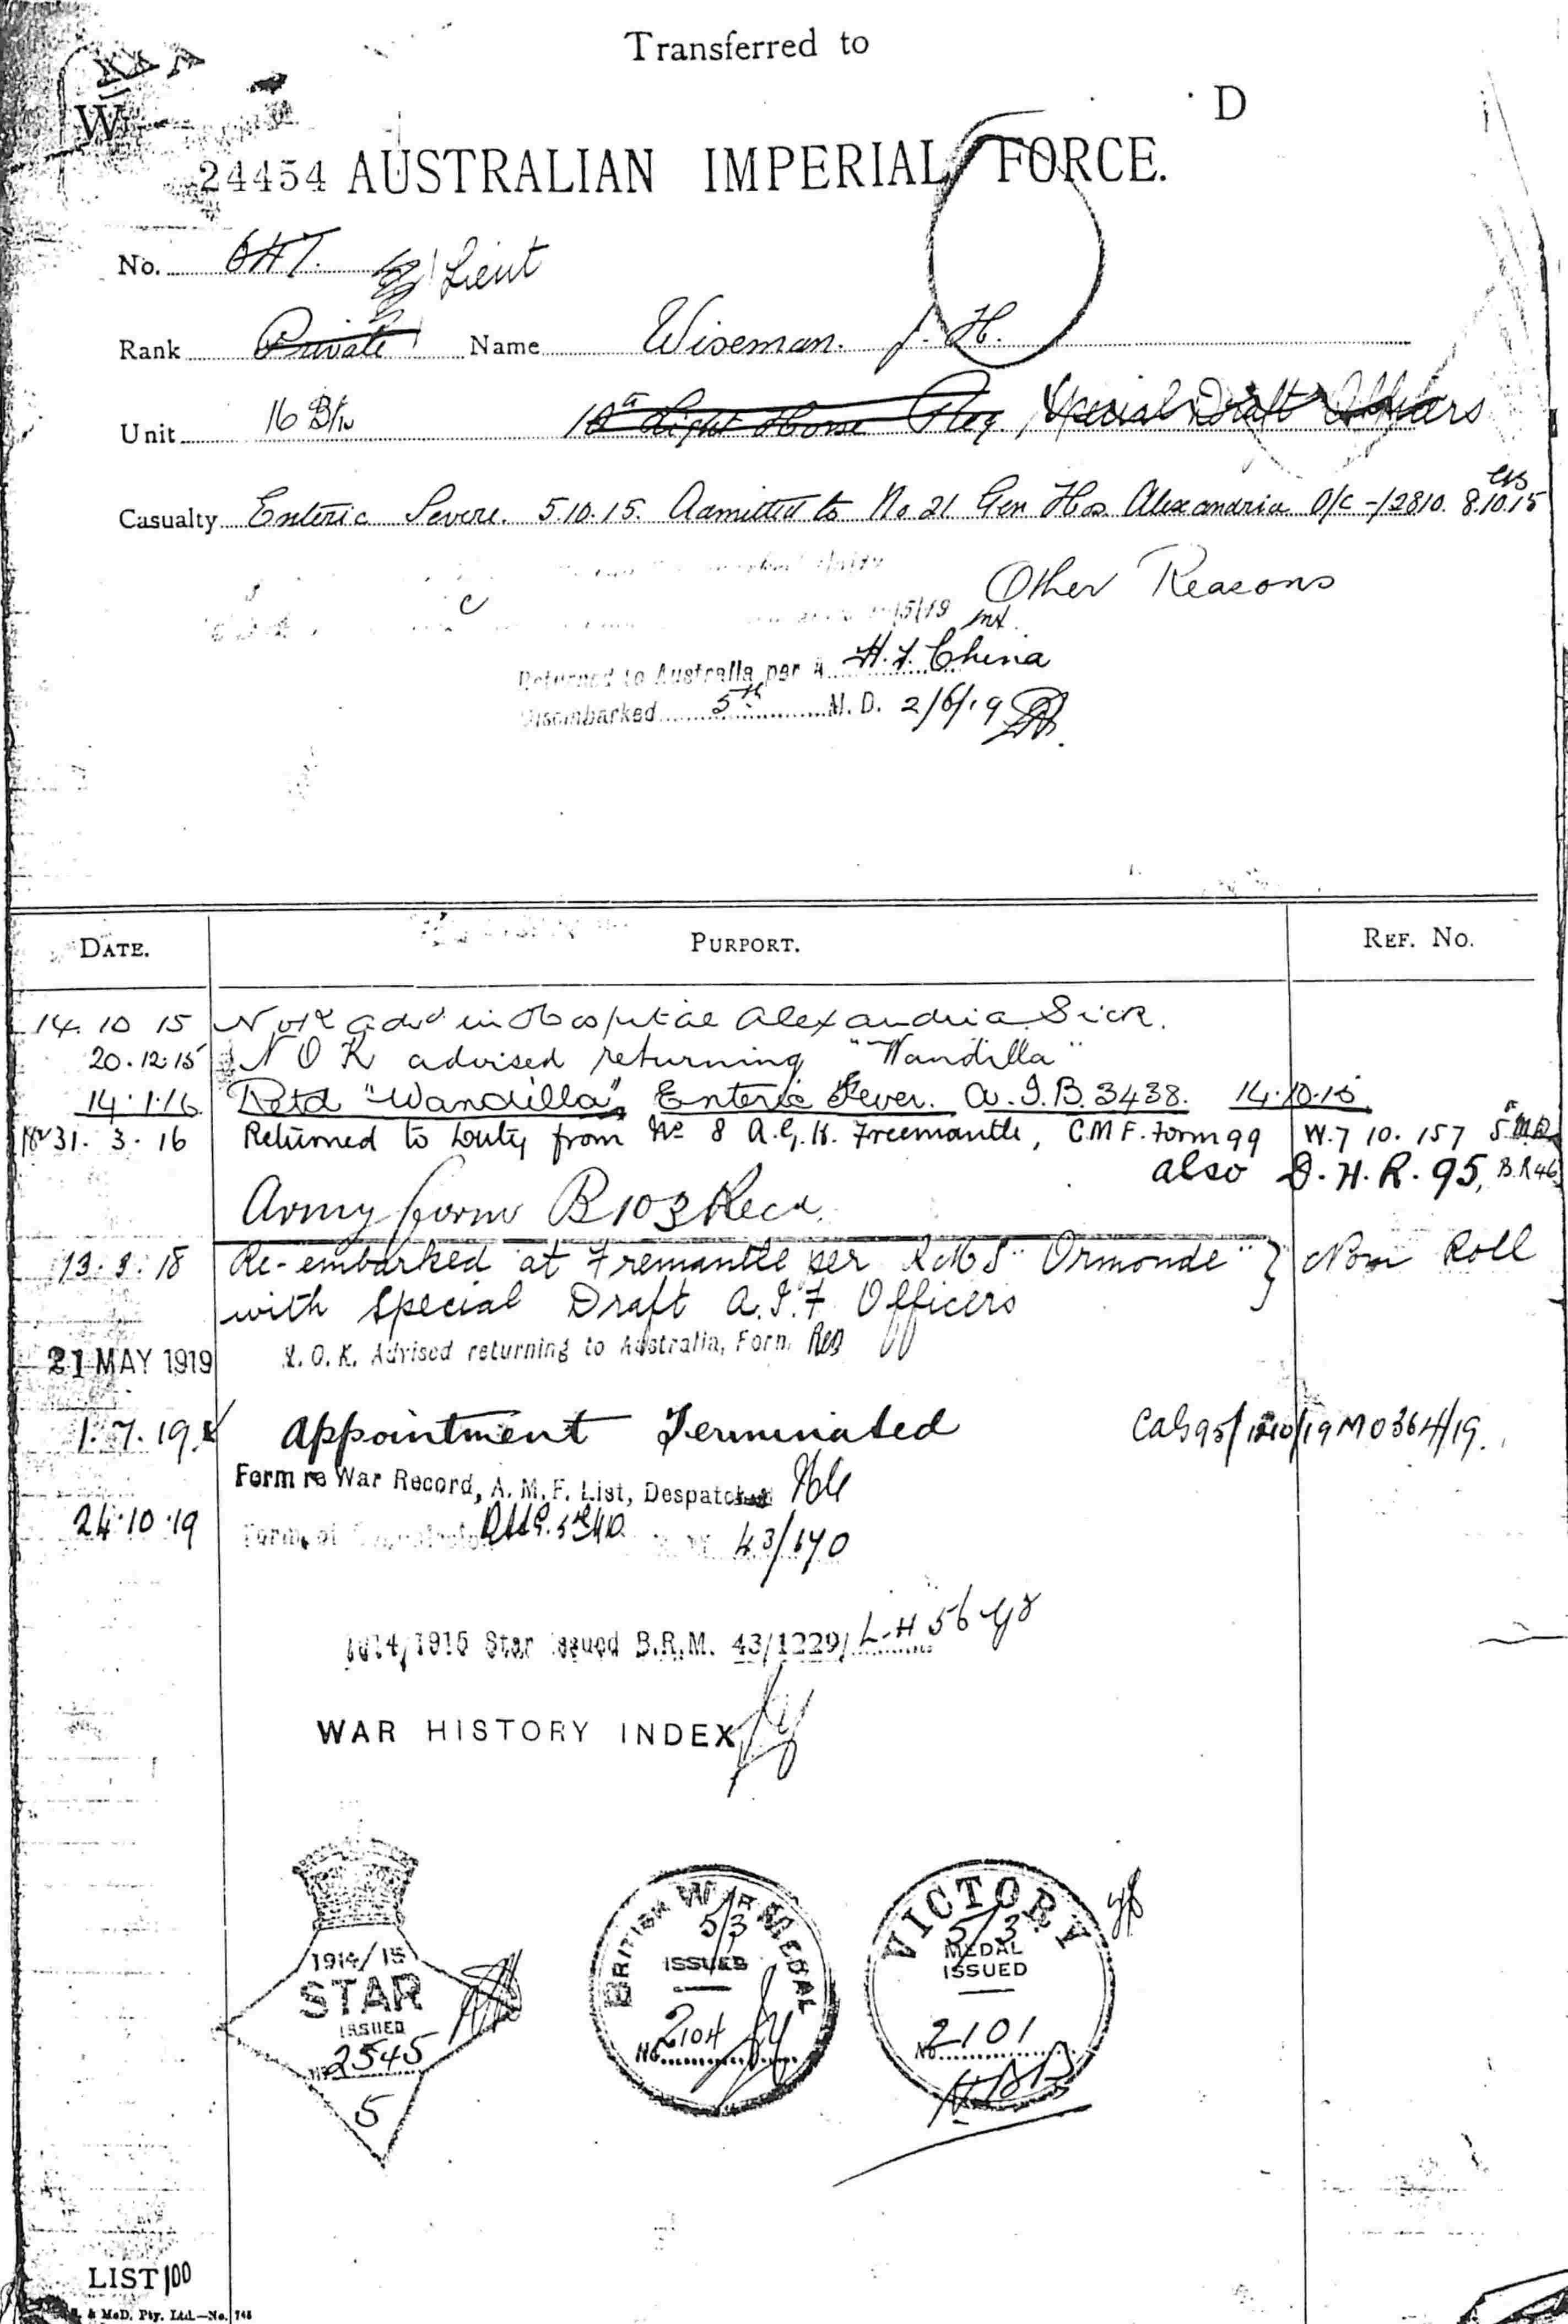 Transferred to
D
24454 AUSTRALIAN IMPERIAL FORCE.
No. 647. Lieut
Rank Private Name Wiseman. J. H.
Unit 16 Btn 10th Light Horse Reg, Special Draft Officers
Casualty Enteric Severe. 5.10.15. Admitted to No 21 Gen Hos Alexandria O/C -/2810. 8.10.15
Other Reasons
Returned to Australia per H.T. China
Disembarked 5th M.D. 2/6/19
DATE. PURPORT. REF. No.
14.10 15 NOK advd in Hospital Alexandria Sick.
20.12.15 N O K advised returning "Wandilla"
14.1.16 Retd "Wandilla", Enteric Fever. A.I.B. 3438. 14.10.15
31.3.16 Returned to Duty from No 8 A.G.H. Freemantle, C.M.F. Form 99 W.7 10.157 5 M.D.
also D.H.R. 95, B.R 46
Army form B103 Recd.
13.3.18 Re-embarked at Fremantle per RMS "Ormonde" } Nom Roll
with Special Draft A.I.F Officers
21 MAY 1919 N.O.K. Advised returning to Australia, Form.
1.7.19 Appointment Terminated MO364/19.
Form re War Record, A. M. F. List, Despatched
24.10.19 43/170
1914/1915 Star Issued B.R.M. 43/1229/ L-H 56
WAR HISTORY INDEX
1914/15
STAR
ISSUED
No 2545
5
BRITISH WAR MEDAL
5/3
ISSUED
No 2104
VICTORY
5/3
MEDAL
ISSUED
No 2101
LIST 100
& McD. Pty. Ltd.—No. 746